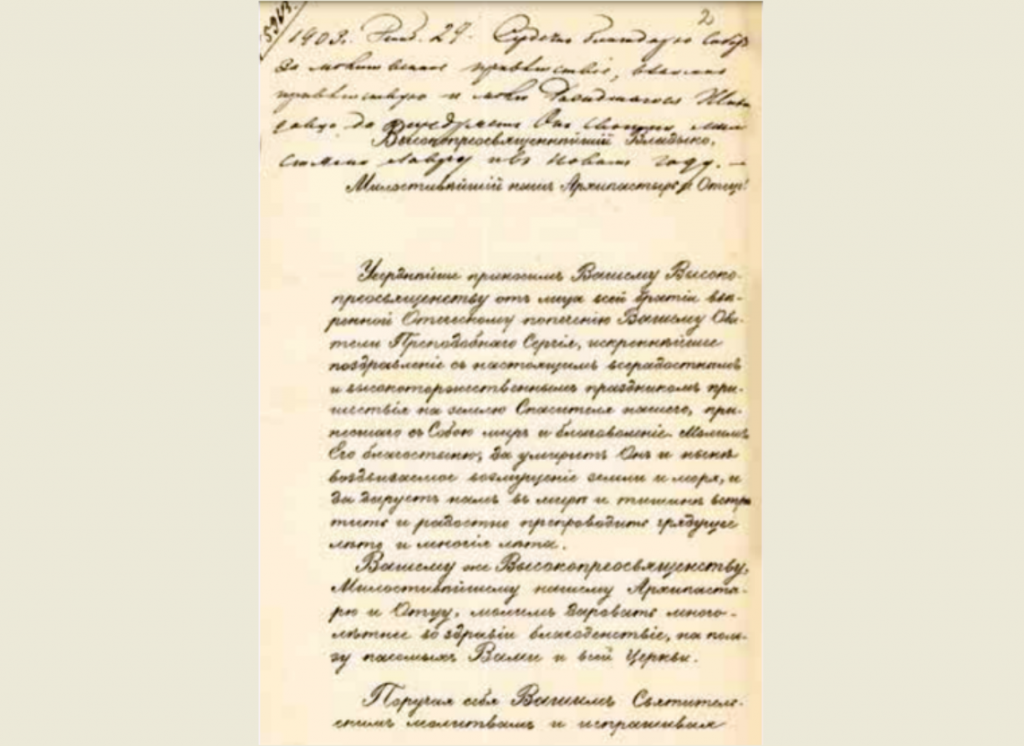 2
1903. 29. Сердечно благодарю Собор
за молитвенное приветствие, взаимно
приветствую и молю
да Он
Высокопреосвященнѣйшій Владыко,
Лавру и въ Новомъ году. —
Милостивѣйшій нашъ Архипастырь и Отецъ!
Усерднѣйше приносимъ Вашему Высоко-
преосвященству отъ лица всей братіи ввѣ-
ренной Отеческому попеченію Вашему Оби-
тели Преподобнаго Сергія, искреннѣйшее
поздравленіе съ настоящимъ всерадостнымъ
и высокоторжественнымъ праздникомъ при-
шествія на землю Спасителя нашего, при-
несшаго съ Собою миръ и благоволеніе. Молимъ
Его благостыню, да умиритъ Онъ и нынѣ
воздвигаемое возмущеніе земли и моря, и
да даруетъ намъ въ мирѣ и тишинѣ встрѣ
тить и радостно препроводить грядущее
лѣто и многія лѣта.
Вашему же Высокопреосвященству,
Милостивѣйшему нашему Архипасты-
рю и Отцу, молимъ даровать много-
лѣтнее во здравіи благоденствіе, на поль-
зу пасомыхъ Вами и всей Церкви.
Поручая себя Вашимъ Святитель-
скимъ молитвамъ и испрашивая